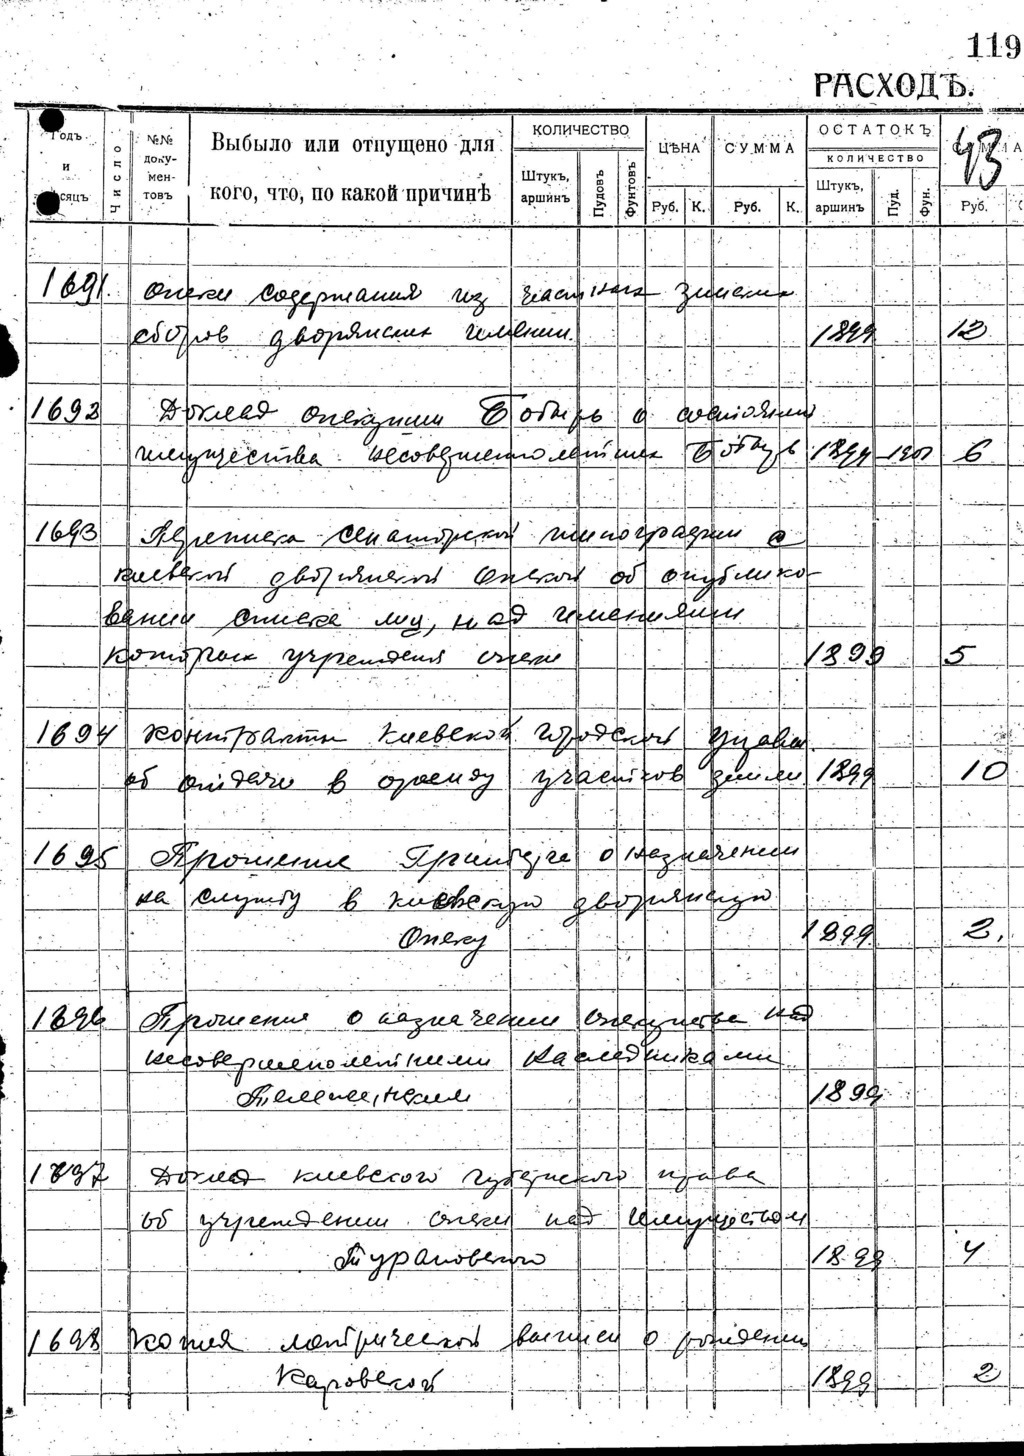 119
РАСХОДЪ.
43
Годъ и мѣсяцъ
Число
№№ доку-ментовъ
Выбыло или отпущено для
кого, что, по какой причинѣ
КОЛИЧЕСТВО
Штукъ, аршинъ
Пудовъ
Фунтовъ
ЦѢНА
Руб. К.
СУММА
Руб. К.
ОСТАТОКЪ
КОЛИЧЕСТВО
Штукъ, аршинъ
Пуд.
Фун.
Руб.
1691. опеки содержания из частных земских
сборов дворянских имении. 1899 12
1692 Доклад опекунши Ботырь о состоянии
имущества несовершеннолетних 1899-1901 6
1693 Переписка Сенатской типографии с
киевской дворянской опекой об опублико-
вании списка лиц, над имениями
которых учреждена опека 1899 5
1694 Контракты Киевской городской управы
об отдаче в аренду участков земли 1899 10
1695 Прошение о назначении
на службу в киевскую дворянскую
Опеку 1899 2.
1696 Прошения о назначении опекунства над
несовершенолетними наследниками
1899
1697 Доклад киевского губернского права
об учреждении опеки над имуществом
Турановского 1899 4
1698 Копия метрической выписи о рождении
Каровской 1899 2